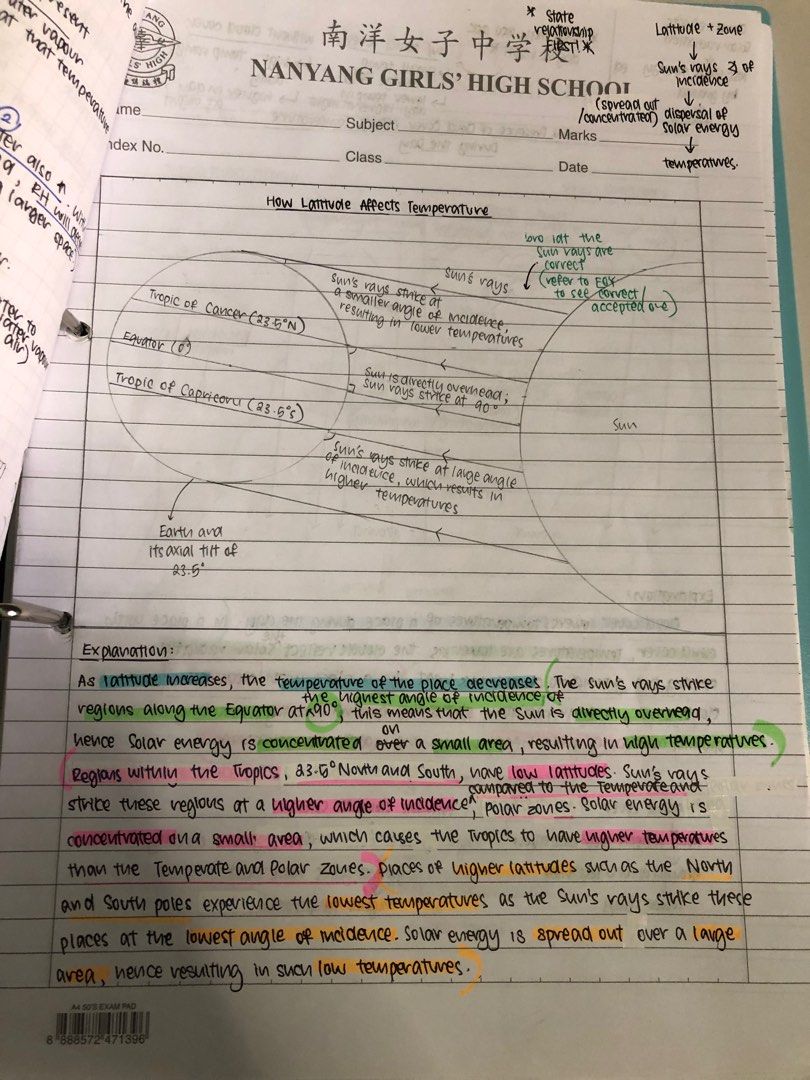 esent
ater vapour
at that temperature
2
ter also ↑. Wi
RH will
larger space,
ter to
water vapou
air)
the
ANG
ES' HIGH
南洋女子中学校
NANYANG GIRLS' HIGH SCHOOL
* State
relationship
FIRST! *
Latitude + zone
↓
Sun's rays ∠ of
incidence
(spread out ↓
/concentrated) dispersal of
solar energy
↓
temperatures.
ame
Subject
Marks
ndex No.
Class
Date
How Latitude Affects Temperature
bro idt the
sun rays are
correct
(refer to EOY
to see correct/
accepted one)
Sun's rays
Sun's rays strike at
a smaller angle of incidence,
resulting in lower temperatures
Tropic of Cancer (23.5°N)
Equator (0°)
Sun is directly overhead;
sun rays strike at 90°
Tropic of Capricorn (23.5°S)
Sun
Sun's rays strike at large angle
of incidence, which results in
higher temperatures
Earth and
its axial tilt of
23.5°
Explanation:
As latitude increases, the temperature of the place decreases. (The sun's rays strike
the highest angle of incidence of
regions along the Equator at ^ 90°, this means that the Sun is directly overhead,
on
hence solar energy is concentrated over a small area, resulting in high temperatures.)
(Regions within the Tropics, 23.5° North and South, have low latitudes. Sun's rays
compared to the Temperate and
strike these regions at a higher angle of incidence ^, Polar zones. Solar energy is
concentrated on a small area, which causes the Tropics to have higher temperatures
than the Temperate and Polar zones.) (Places of higher latitudes such as the North
and South poles experience the lowest temperatures as the Sun's rays strike these
places at the lowest angle of incidence. Solar energy is spread out over a large
area, hence resulting in such low temperatures.)
A4 50'S EXAM PAD
8 888572 471396